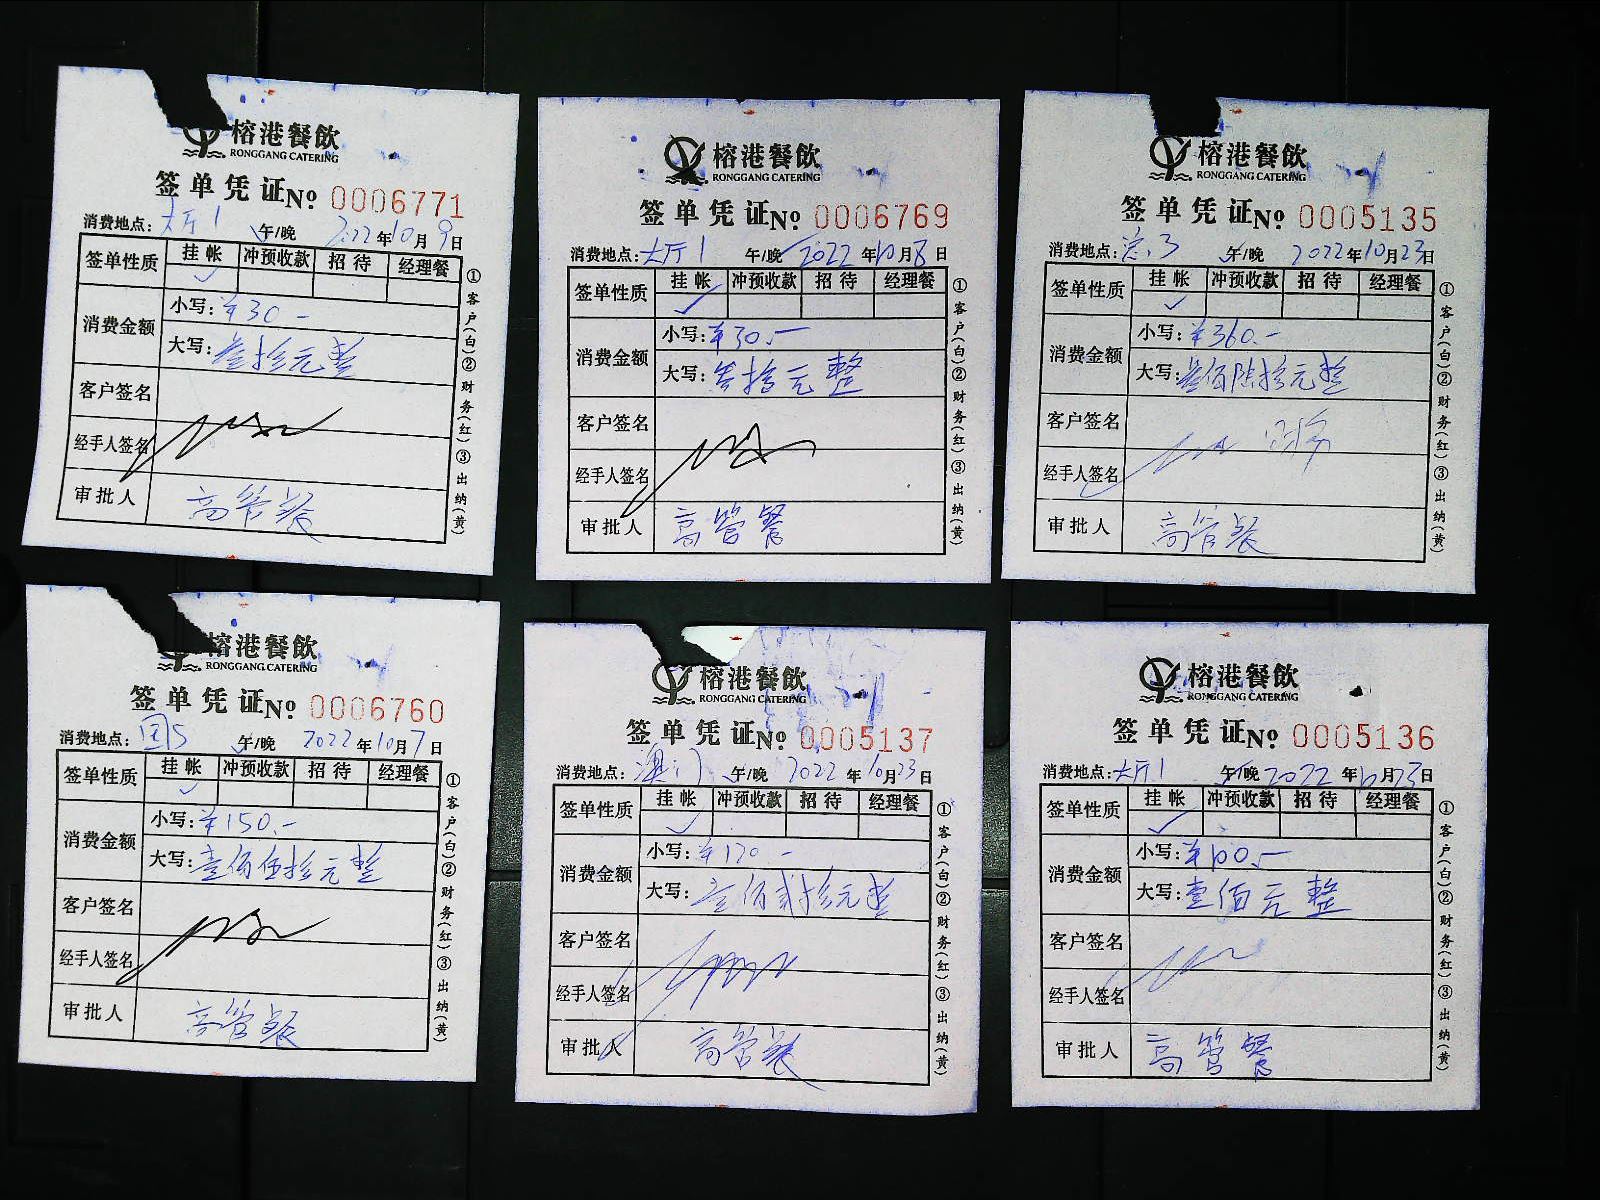 榕港餐飲
RONGGANG CATERING
签单凭证№ 0006771
消费地点: 大厅1 午/晚 2022年10月9日
签单性质 挂帐 冲预收款 招待 经理餐
✓
消费金额
小写: ¥30 -
大写: 叁拾元整
客户签名
经手人签名
审批人 高管餐
①客户(白)②财务(红)③出纳(黄)
榕港餐飲
RONGGANG CATERING
签单凭证№ 0006769
消费地点: 大厅1 午/晚 2022年10月8日
签单性质 挂帐 冲预收款 招待 经理餐
✓
消费金额
小写: ¥30.-
大写: 叁拾元整
客户签名
经手人签名
审批人 高管餐
①客户(白)②财务(红)③出纳(黄)
榕港餐飲
RONGGANG CATERING
签单凭证№ 0005135
消费地点: 午/晚 2022年10月23日
签单性质 挂帐 冲预收款 招待 经理餐
✓
消费金额
小写: ¥360.-
大写: 叁佰陆拾元整
客户签名
经手人签名
审批人 高管餐
①客户(白)②财务(红)③出纳(黄)
榕港餐飲
RONGGANG CATERING
签单凭证№ 0006760
消费地点: 午/晚 2022年10月7日
签单性质 挂帐 冲预收款 招待 经理餐
✓
消费金额
小写: ¥150.-
大写: 壹佰伍拾元整
客户签名
经手人签名
审批人 高管餐
①客户(白)②财务(红)③出纳(黄)
榕港餐飲
RONGGANG CATERING
签单凭证№ 0005137
消费地点: 澳门 午/晚 2022年10月23日
签单性质 挂帐 冲预收款 招待 经理餐
✓
消费金额
小写: ¥120 -
大写: 壹佰贰拾元整
客户签名
经手人签名
审批人 高管餐
①客户(白)②财务(红)③出纳(黄)
榕港餐飲
RONGGANG CATERING
签单凭证№ 0005136
消费地点: 大厅1 午/晚 2022年10月23日
签单性质 挂帐 冲预收款 招待 经理餐
✓
消费金额
小写: ¥100.-
大写: 壹佰元整
客户签名
经手人签名
审批人 高管餐
①客户(白)②财务(红)③出纳(黄)